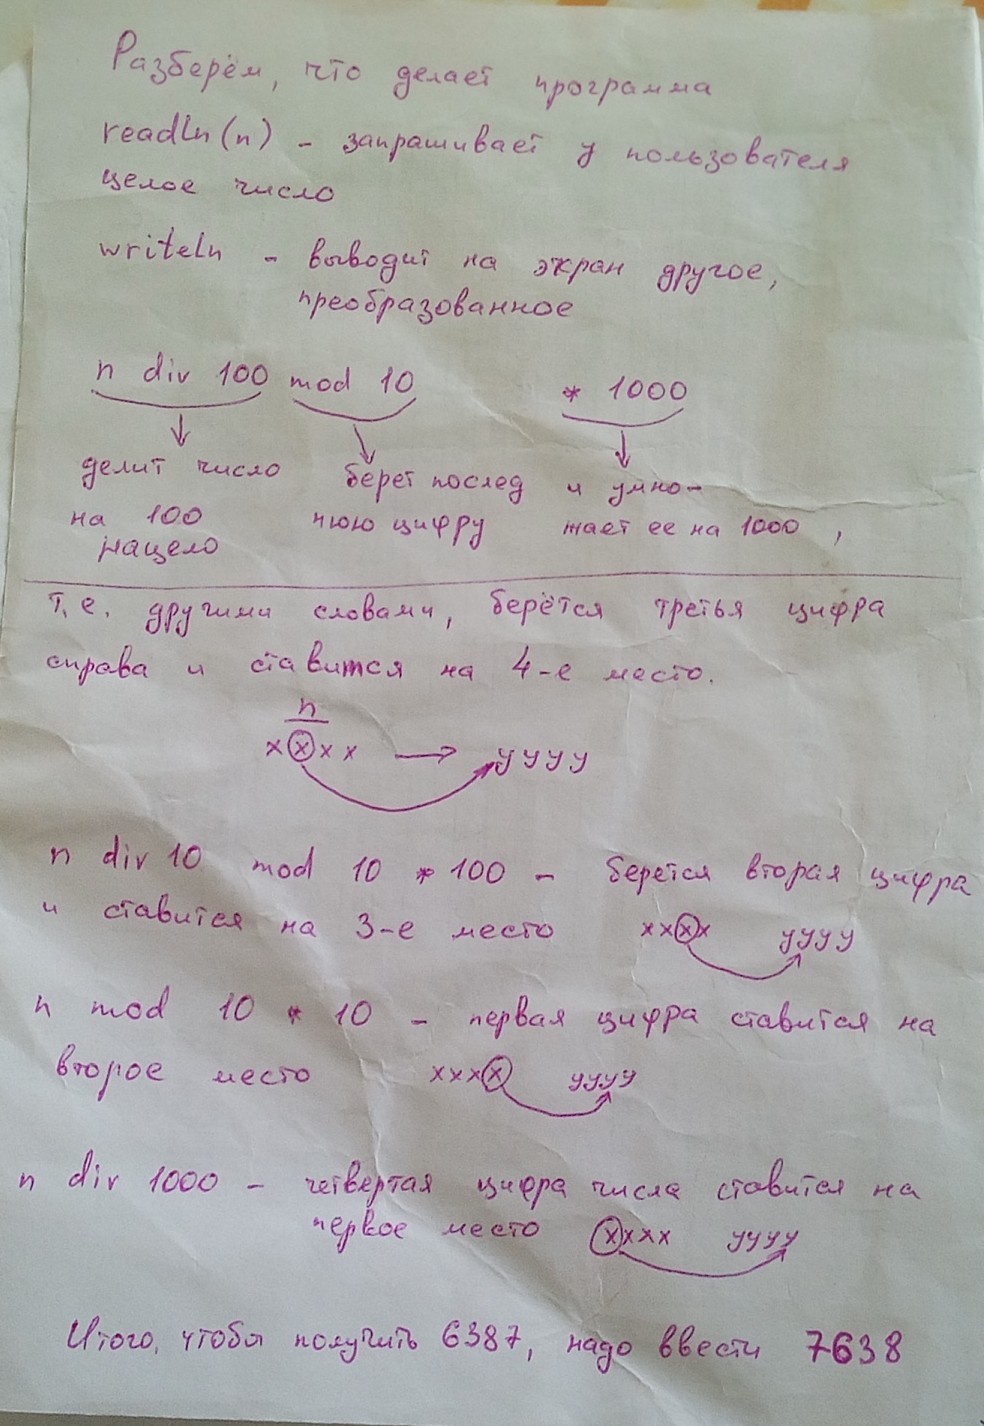 Разберём, что делает программа
readln(n) - запрашивает у пользователя
целое число
writeln - выводит на экран другое,
преобразованное
n div 100 mod 10 * 1000
делит число берет послед и умно-
на 100 нюю цифру жает ее на 1000 ,
нацело
Т.е. другими словами, берётся третья цифра
справа и ставится на 4-е место.
n
x x x x → y y y y
n div 10 mod 10 * 100 - берется вторая цифра
и ставится на 3-е место xxxx yyyy
n mod 10 * 10 - первая цифра ставится на
второе место xxxx yyyy
n div 1000 - четвертая цифра числа ставится на
первое место xxxx yyyy
Итого, чтобы получить 6387, надо ввести 7638